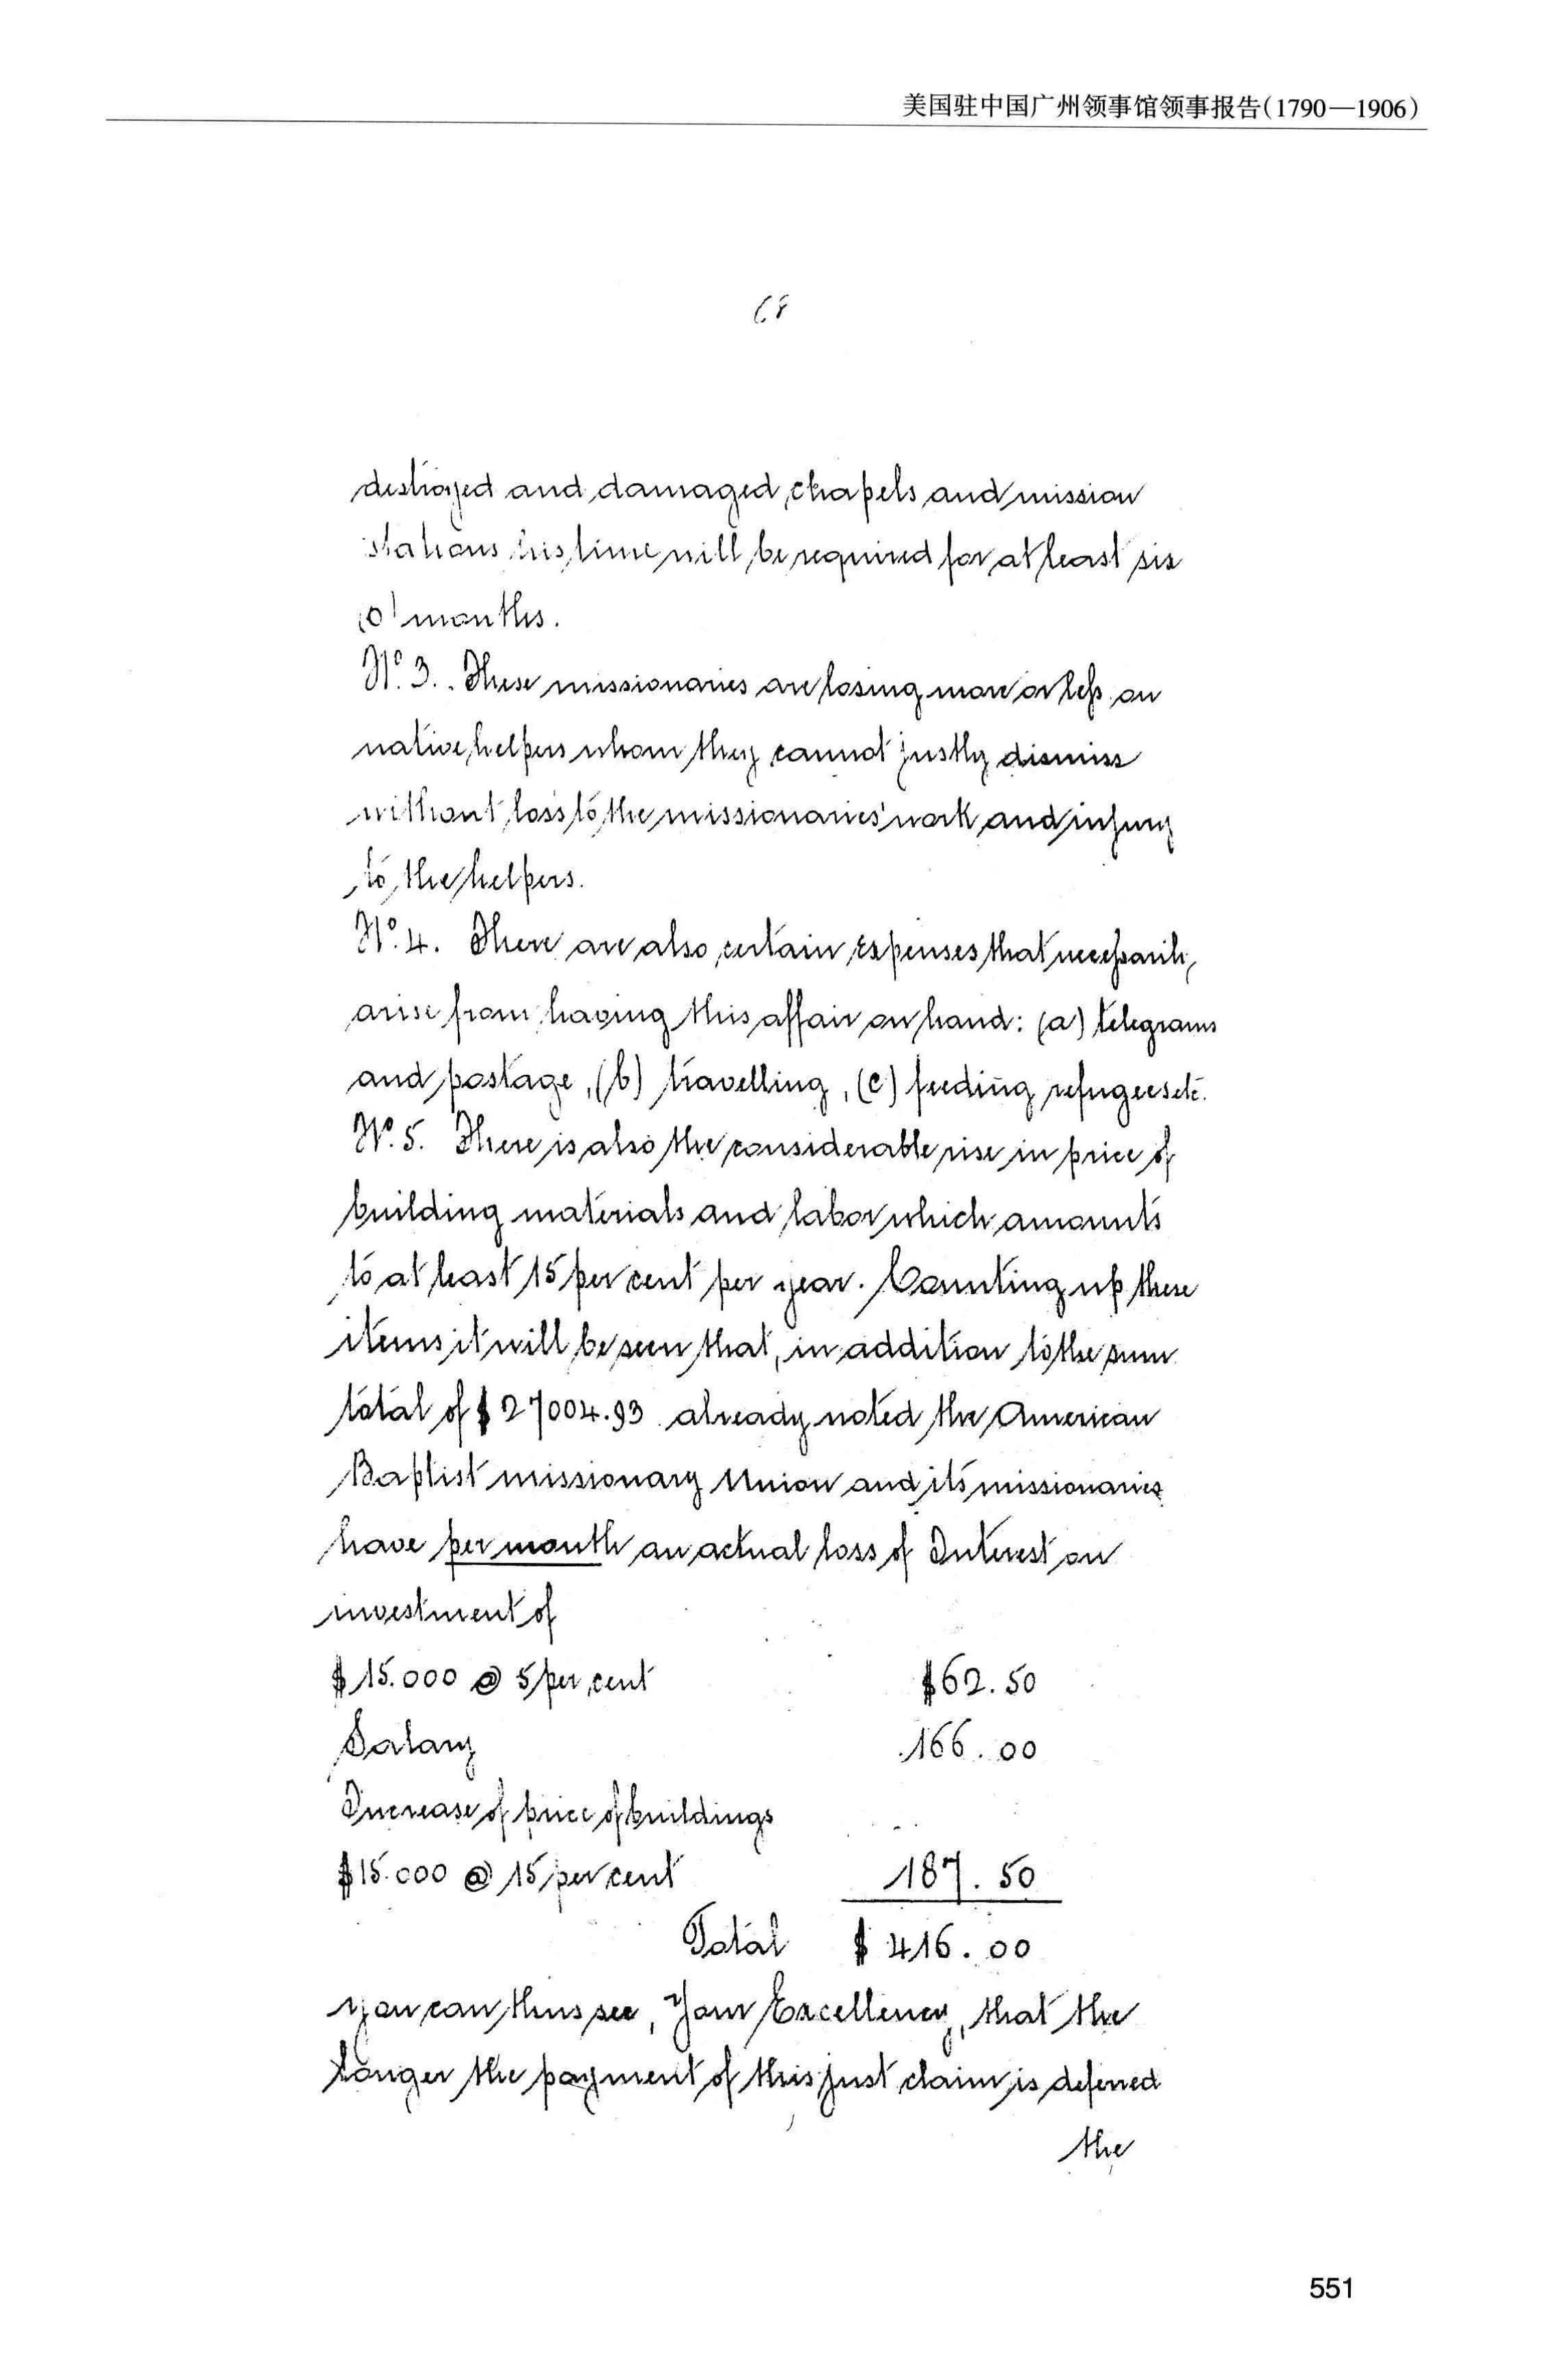 美国驻中国广州领事馆领事报告(1790—1906)
68
destroyed and damaged chapels and mission
stations his time will be required for at least six
months.
No. 3. These missionaries are losing more or less on
native helpers whom they cannot justly dismiss
without loss to the missionaries' work and injury
to the helpers.
No. 4. There are also certain expenses that necessarily
arise from having this affair on hand: (a) telegrams
and postage, (b) travelling, (c) feeding refugees etc.
No. 5. There is also the considerable rise in price of
building materials and labor which amounts
to at least 15 per cent per year. Counting up these
items it will be seen that, in addition to the sum
total of $27004.93 already noted the American
Baptist missionary Union and its missionaries
have per month an actual loss of Interest on
investment of
$15.000 @ 5 per cent $62.50
Salary 166.00
Increase of price of buildings
$15.000 @ 15 per cent 187.50
Total $416.00
You can thus see, Your Excellency, that the
longer the payment of this just claim is deferred
the
551